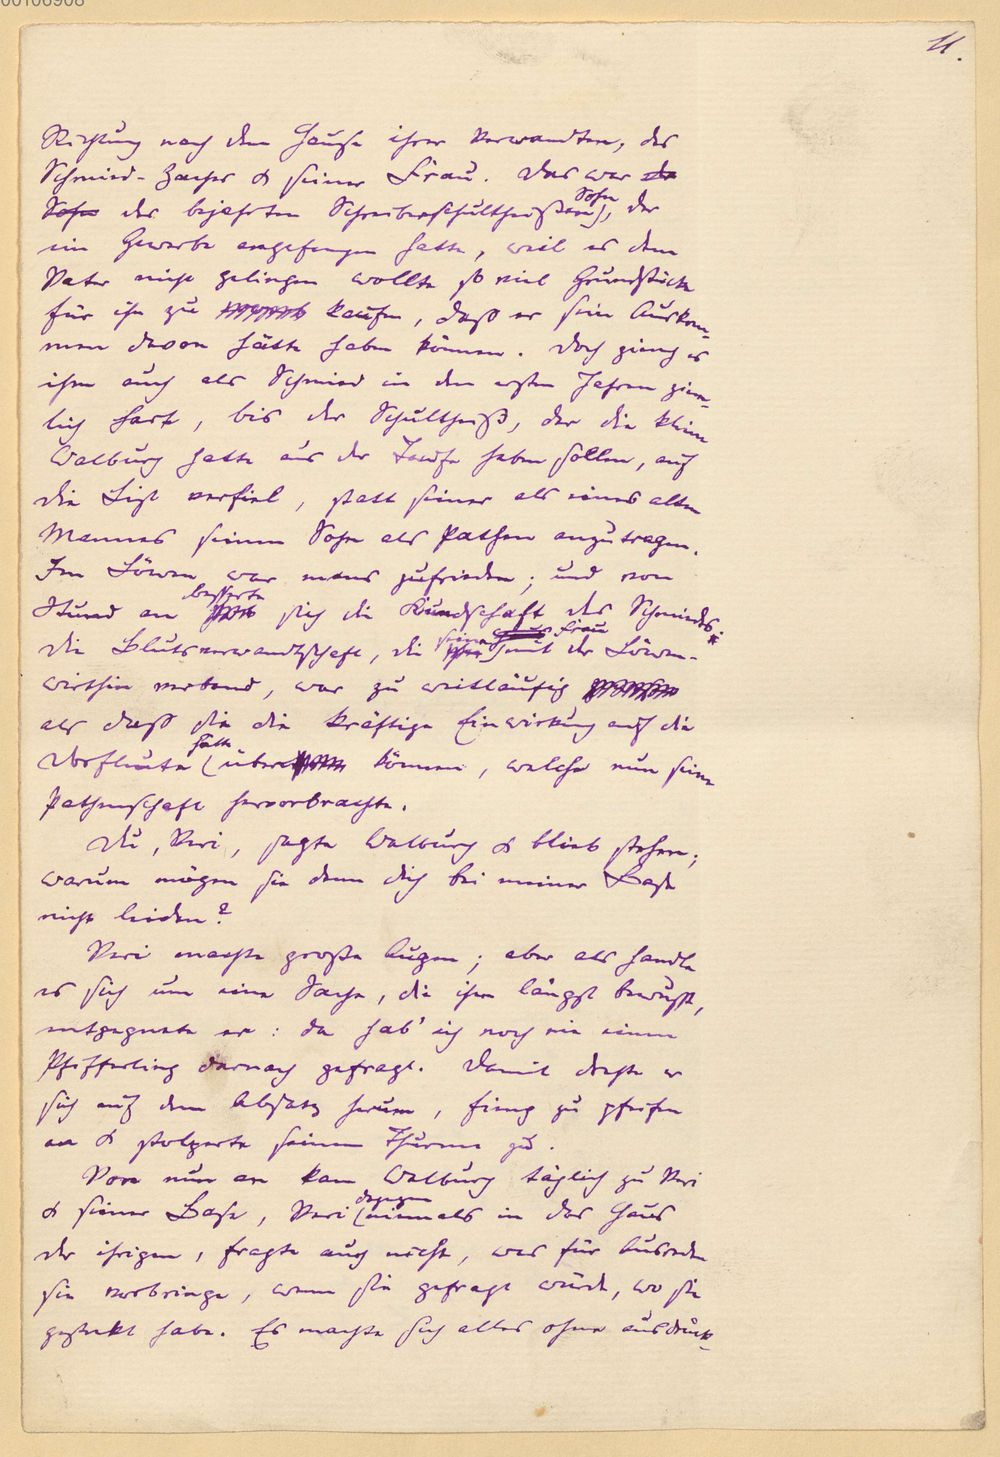 00106908
11.
Richtung nach dem Hause ihrer Verwandten, des
Schmied-Zachs & seiner Frau. Das war der
Sohn des bejahrten Schreiberschultheißen Sohn, der
ein Gewerbe angefangen hatte, weil es dem
Vater nicht gelingen wollte so viel Grundstücke
für ihn zu kaufen, daß er sein Auskom-
men davon hätte haben können. Doch gieng es
ihm auch als Schmied in den ersten Jahren ziem-
lich hart, bis der Schultheiß, der die kleine
Walburg hatte aus der Taufe heben sollen, auf
die List verfiel, statt seiner als eines alten
Mannes seinen Sohn als Pathen anzutragen.
Im Löwen war mans zufrieden; und von
besserte
Stund an sich die Kundschaft des Schmieds:
seine Frau
die Blutsverwandtschaft, die mit der Löwen-
wirthin verband, war zu weitläufig
als daß sie die kräftige Einwirkung auf die
hätte
Dorfleute über können, welche nun seine
Pathenschaft hervorbrachte.
Du, Veri, sagte Walburg & blieb stehen;
warum mögen sie denn dich bei meiner Base
nicht leiden?
Veri machte große Augen; aber als handle
es sich um eine Sache, die ihm längst bewußt,
entgegnete er: da hab' ich noch nie einen
Pfifferling darnach gefragt. Damit drehte er
sich auf dem Absatz herum, fieng zu pfeifen
an & stolperte seinem Thurme zu.
Von nun an kam Walburg täglich zu Veri
dagegen
& seiner Base, Veri niemals in das Haus
der ihrigen, fragte auch nicht, was für Ausreden
sie vorbringe, wenn sie gefragt würde, wo sie
gesteckt habe. Es machte sich alles ohne ausdrück-